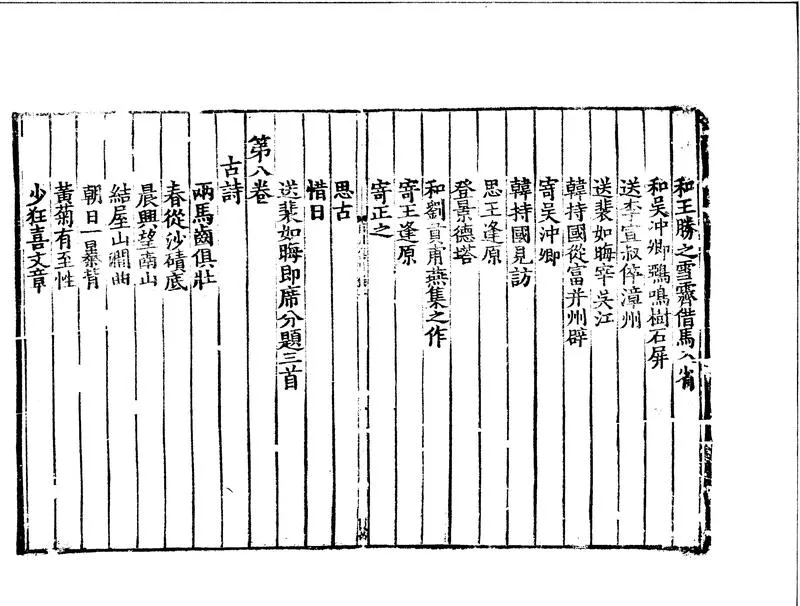 和王勝之雪霽借馬入省
和吳冲卿鵶鳴樹石屏
送李宣叔倅漳州
送裴如晦宰吳江
韓持國從富并州辟
寄吳沖卿
韓持國見訪
思王逢原
登景德塔
和劉貢甫燕集之作
寄王逢原
寄正之
思古
惜日
送裴如晦即席分題三首
第八卷
古詩
兩馬齒俱壯
春從沙磧底
晨興望南山
結屋山澗曲
朝日一曝背
黃菊有至性
少狂喜文章